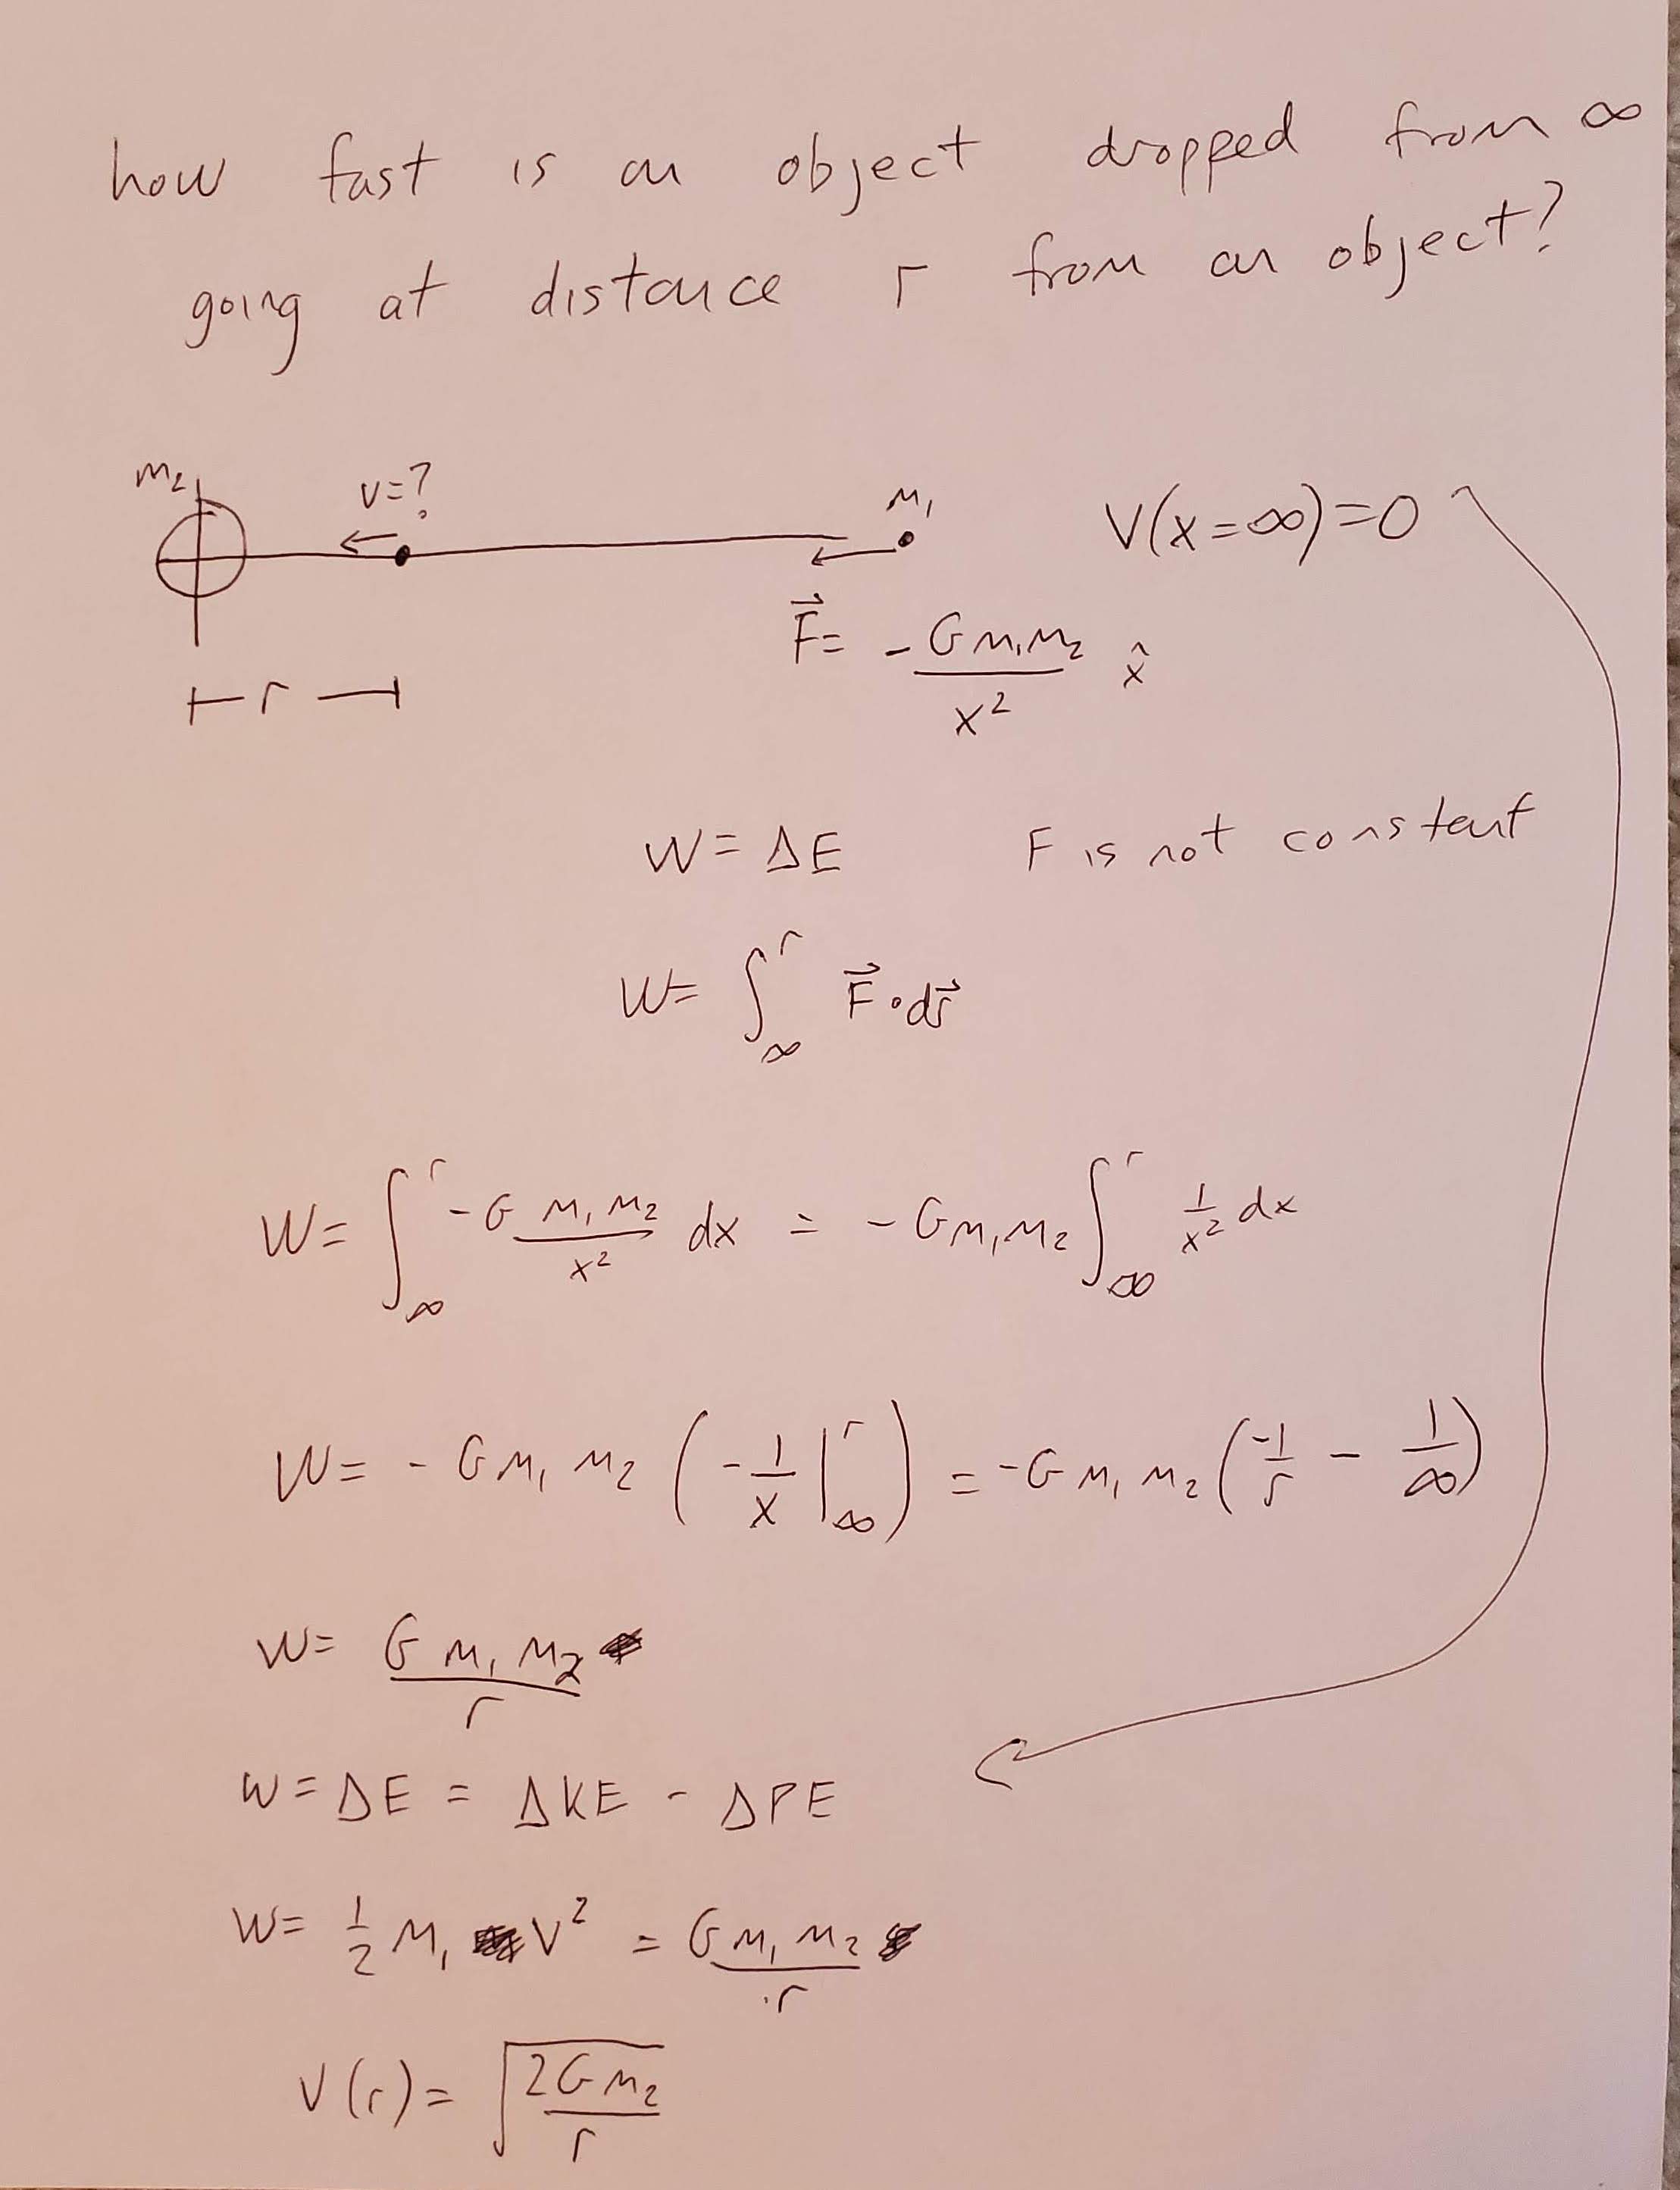 how fast is an object dropped from ∞
going at distance r from an object?
m₂ v=? m₁ V(x=∞)=0
F⃗= -Gm₁m₂/x² x̂
r
W=ΔE F is not constant
W= ∫_∞^r F⃗•dr⃗
W= ∫_∞^r -G m₁m₂/x² dx = -Gm₁m₂ ∫_∞^r 1/x² dx
W= -Gm₁m₂ (-1/x |_∞^r) = -Gm₁m₂ (-1/r - 1/∞)
W= Gm₁m₂/r
W=ΔE = ΔKE - ΔPE
W= 1/2 m₁ V² = Gm₁m₂/r
V(r)= √(2Gm₂/r)